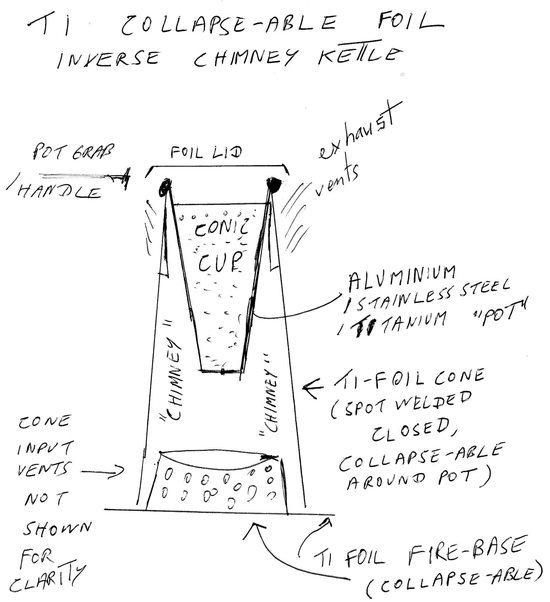 TI COLLAPSE-ABLE FOIL
INVERSE CHIMNEY KETTLE
POT GRAB
/HANDLE
FOIL LID
exhaust
vents
CONIC
CUP
ALUMINIUM
/STAINLESS STEEL
/TITANIUM "POT"
"CHIMNEY"
"CHIMNEY"
TI-FOIL CONE
(SPOT WELDED
CLOSED,
COLLAPSE-ABLE
AROUND POT)
CONE
INPUT
VENTS
NOT
SHOWN
FOR
CLARITY
TI FOIL FIRE-BASE
(COLLAPSE-ABLE)